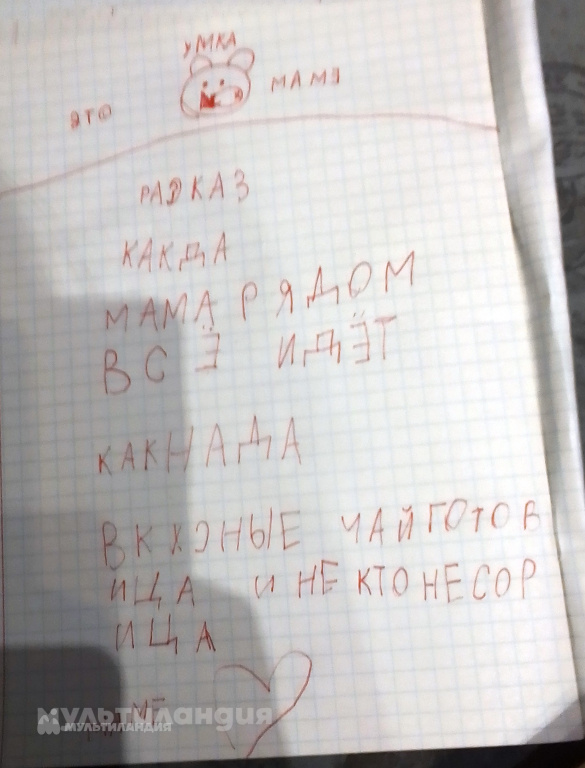 УМКА
ЭТО МАМЕ
РАЗКАЗ
КАКДА
МАМА РЯДОМ
ВСЁ ИДЁТ
КАКНАДА
ВКУСНЫЕ ЧАЙ ГОТОВ
ИЦА И НЕ КТО НЕ СОР
ИЦА
МУЛЬТИЛАНДИЯ
МУЛЬТИЛАНДИЯ